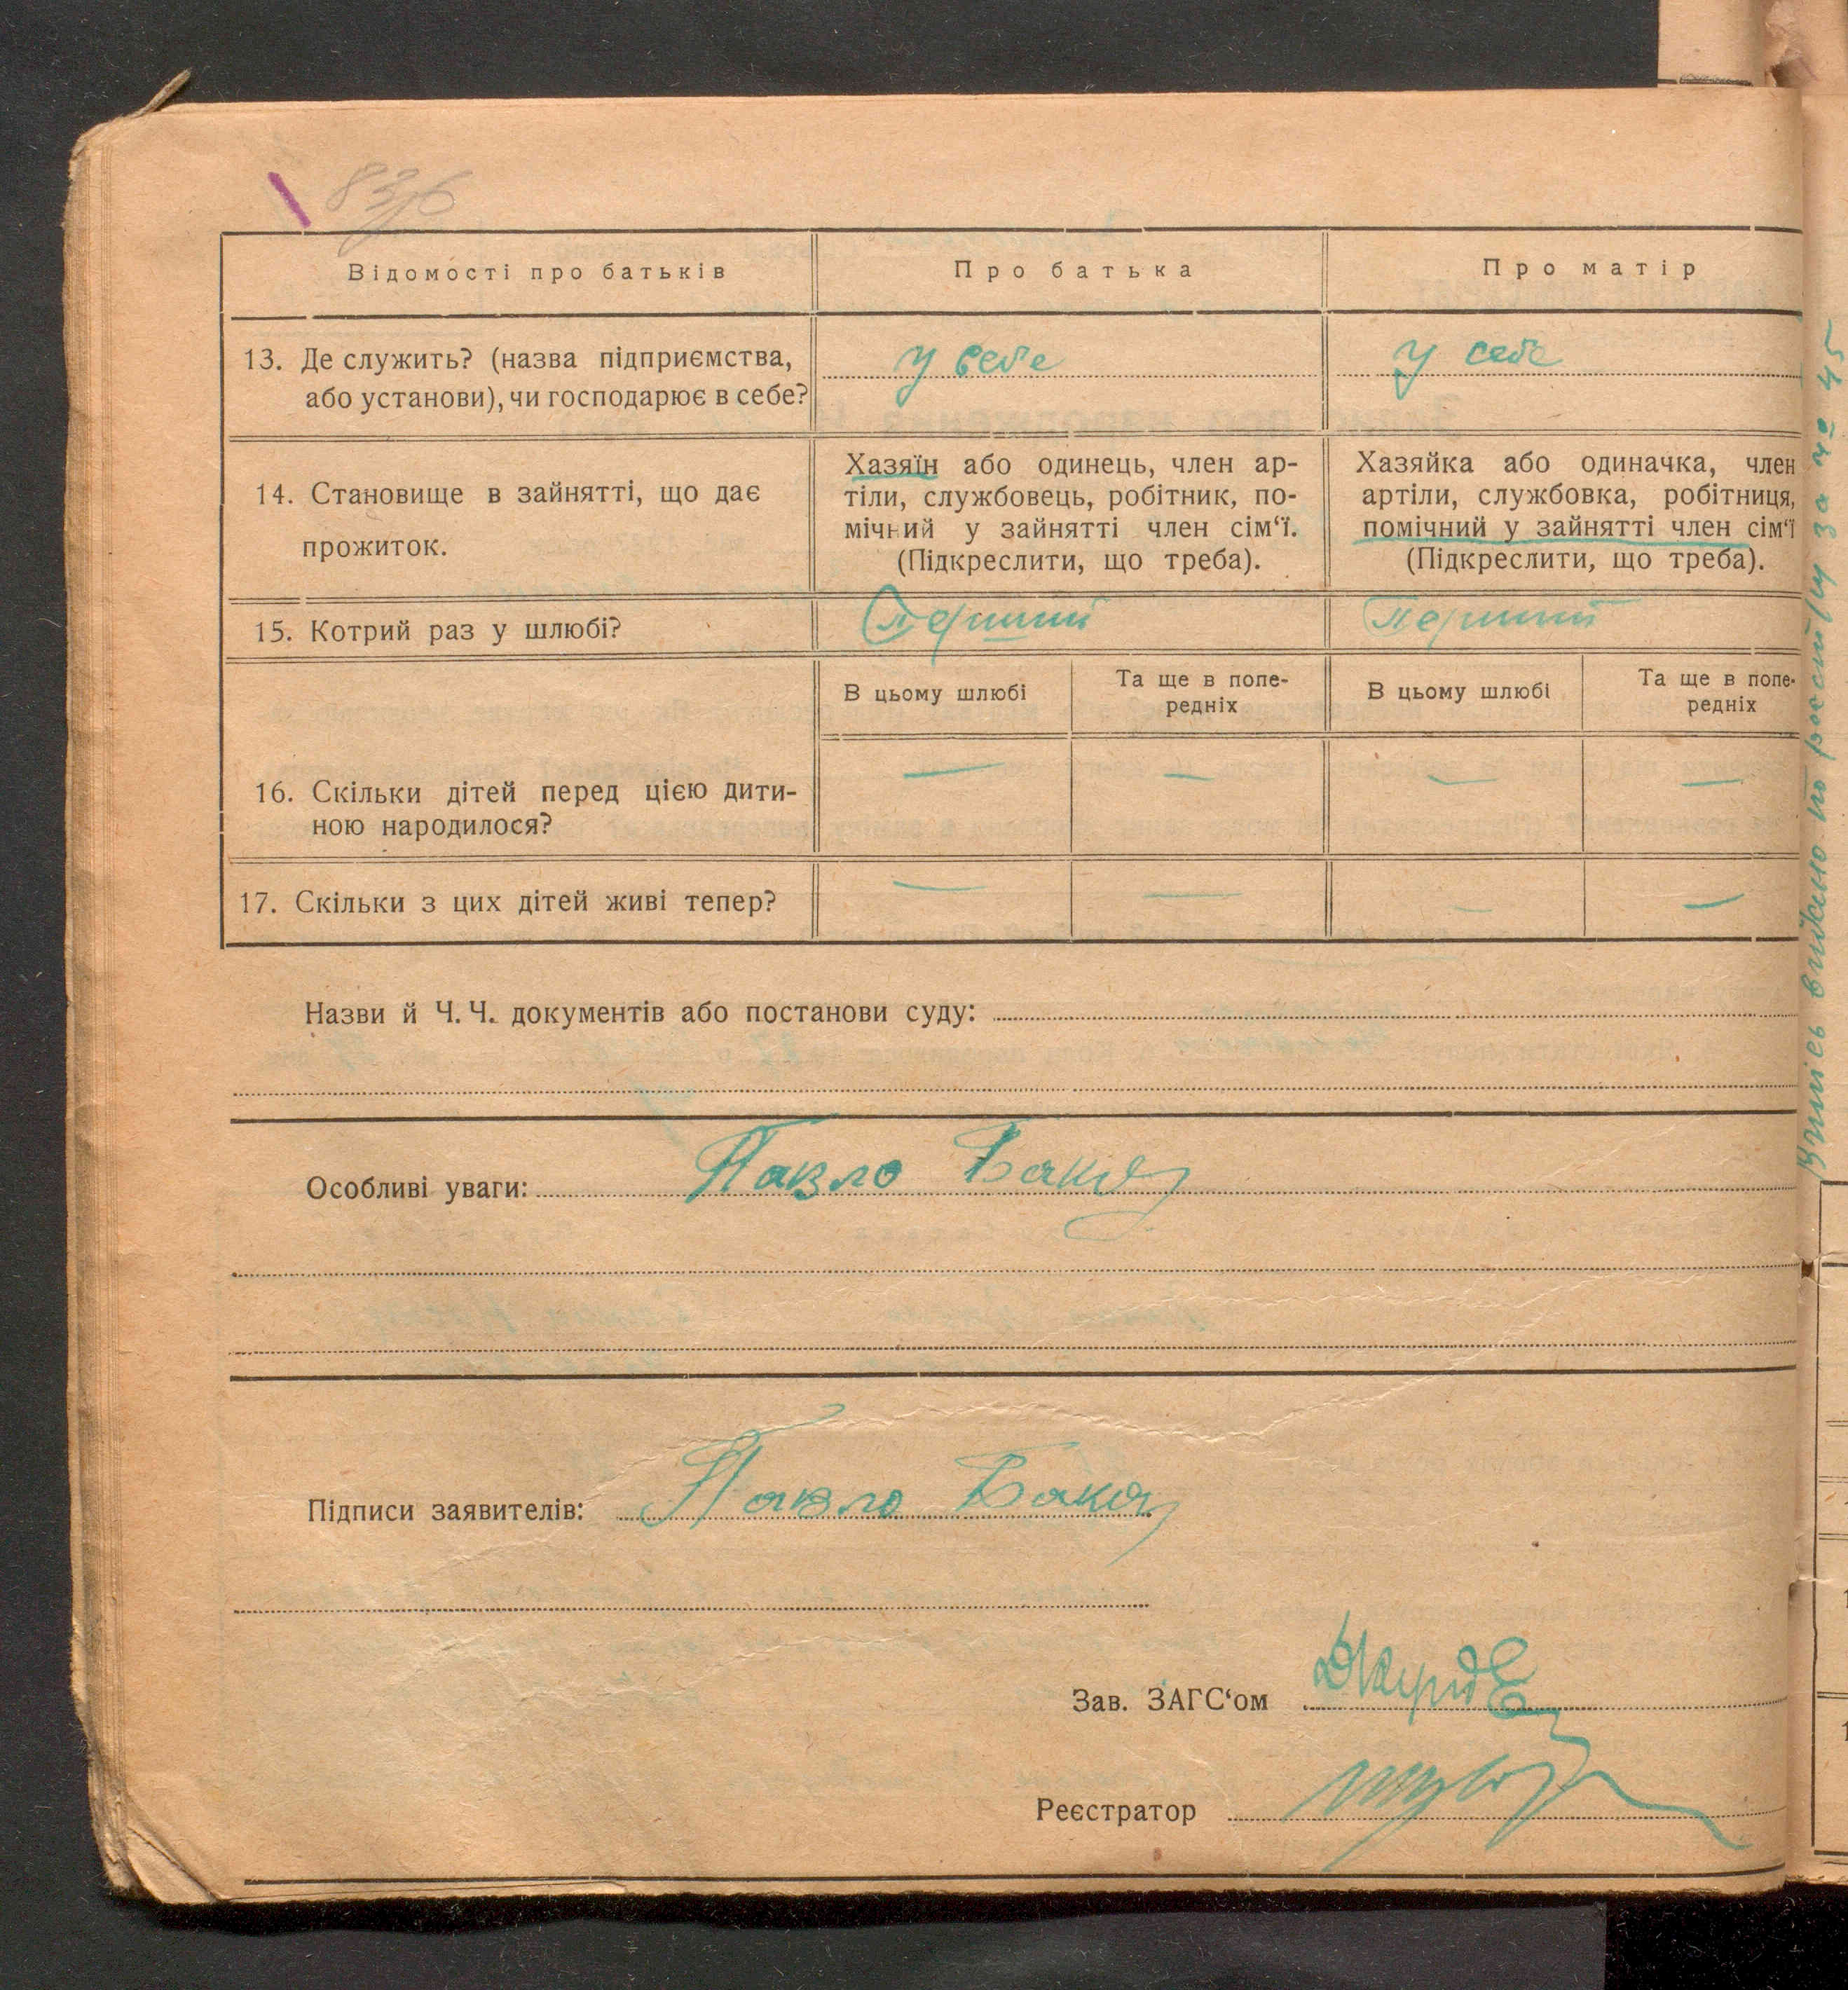 Відомості про батьків
Про батька
Про матір
13. Де служить? (назва підприємства,
або установи), чи господарює в себе?
у себе
у себе
14. Становище в зайнятті, що дає
прожиток.
Хазяїн або одинець, член ар-
тіли, службовець, робітник, по-
мічний у зайнятті член сім‘ї.
(Підкреслити, що треба).
Хазяйка або одиначка, член
артіли, службовка, робітниця,
помічний у зайнятті член сім‘ї
(Підкреслити, що треба).
15. Котрий раз у шлюбі?
Перший
Перший
В цьому шлюбі
Та ще в попе-
редніх
В цьому шлюбі
Та ще в попе-
редніх
16. Скільки дітей перед цією дити-
ною народилося?
— — — —
17. Скільки з цих дітей живі тепер?
— — — —
Назви й Ч. Ч. документів або постанови суду:
Особливі уваги: Павло Бака
Підписи заявителів: Павло Бака
Зав. ЗАГС‘ом
Реєстратор
видано за № 45